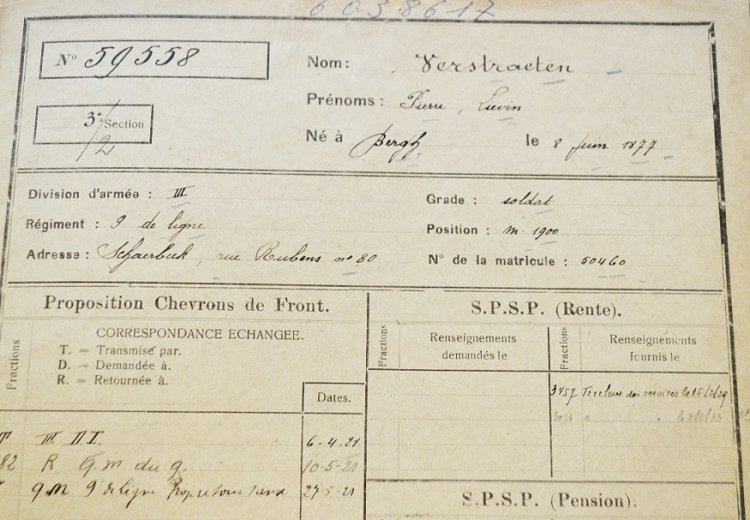 6038617
N° 59558
Nom: Verstraeten
3e/2 Section
Prénoms: Pierre, Lievin
Né à Bergh le 8 juin 1877
Division d'armée : III
Grade : soldat
Régiment : 9 de ligne
Position : m. 1900
Adresse : Schaerbeek, rue Rubens no 80
N° de la matricule : 50460
Proposition Chevrons de Front.
CORRESPONDANCE ECHANGEE.
Fractions
T. = Transmise par.
D. = Demandée à.
R. = Retournée à.
Dates.
T III D I. 6-4-21
82 R G.M. du G. 10-5-21
T 9M 9 de ligne 27-5-21
S.P.S.P. (Rente).
Fractions
Renseignements
demandés le
Fractions
Renseignements
fournis le
3457 des services le 15/2/29
S.P.S.P. (Pension).